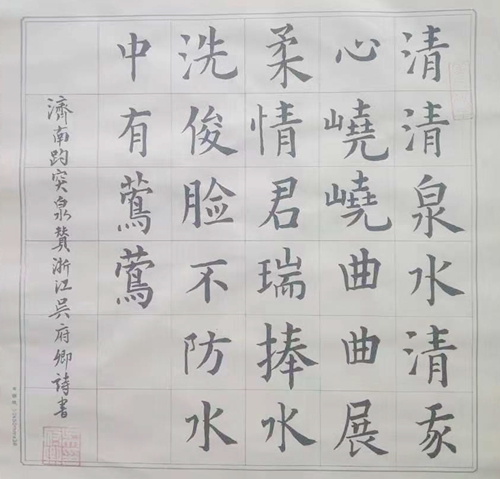 清清泉水清我
心嶢嶢曲曲展
柔情君瑞捧水
洗俊脸不防水
中有莺莺
濟南趵突泉賛浙江吴府卿詩書